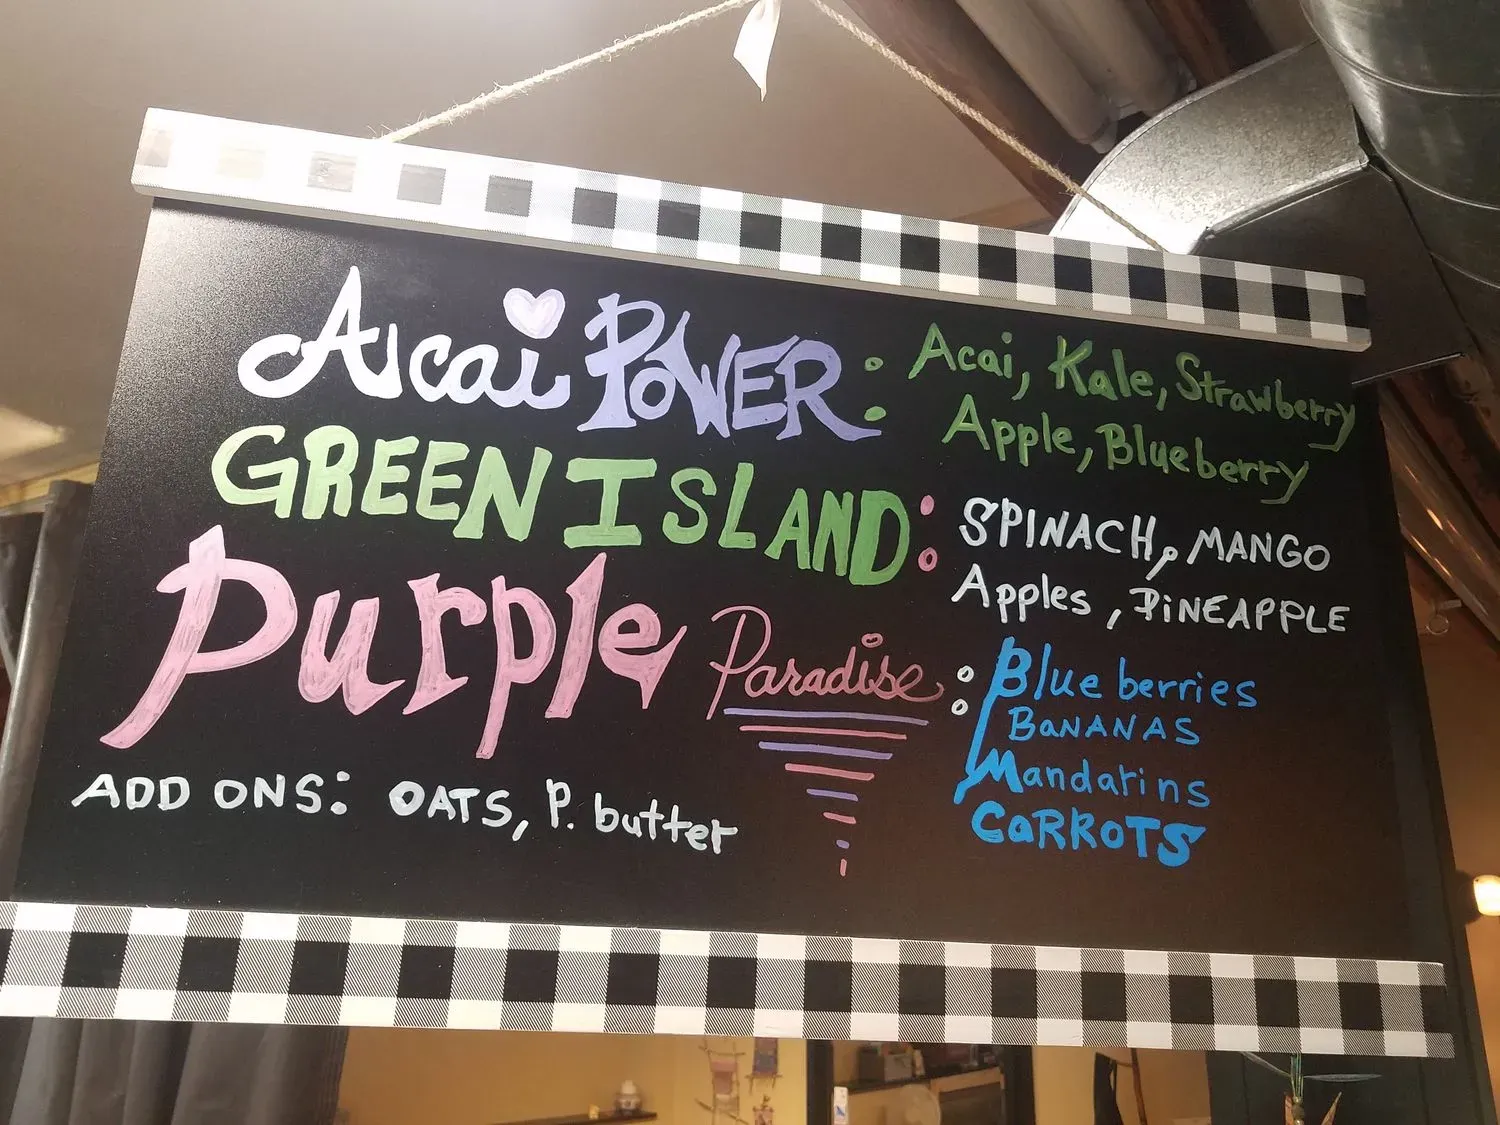 Acai POWER: Acai, Kale, Strawberry
Apple, Blueberry
GREEN ISLAND: SPINACH, MANGO
Apples, PiNEAPPLE
Purple Paradise: Blueberries
BaNANAS
Mandarins
CaRROTS
ADD ONS: OATS, P. butter